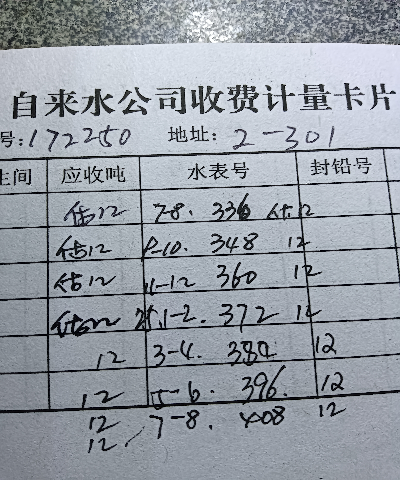 自来水公司收费计量卡片
号:172250 地址: 2-301
生间 应收吨 水表号 封铅号
估12 7-8. 336 估12
估12 9-10. 348 12
估12 11-12 360 12
估12 25.1-2. 372 12
12 3-4. 384 12
12 5-6. 396. 12
12 7-8. 408 12
12